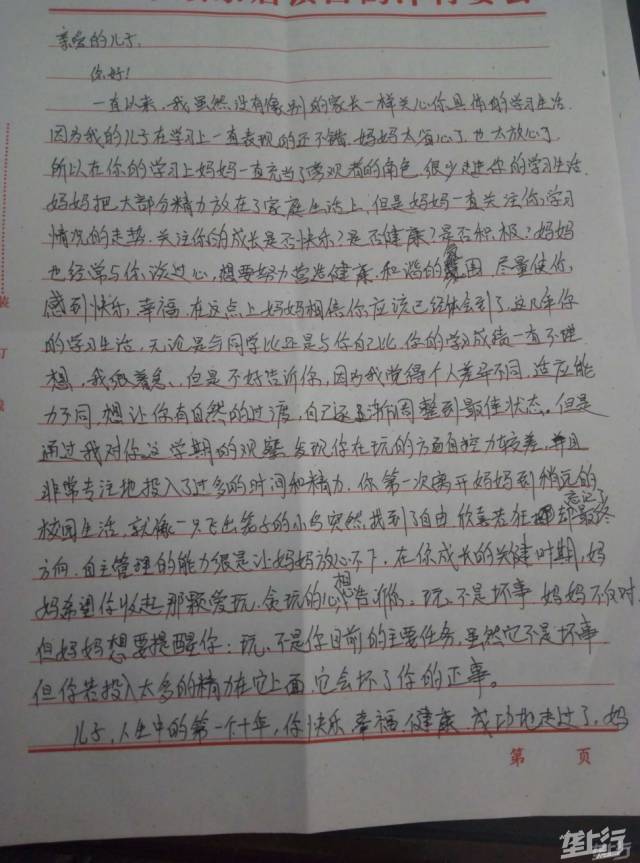 亲爱的儿子.
你好!
一直以来,我虽然没有像别的家长一样关心你具体的学习生活.
因为我的儿子在学习上一直表现的还不错,妈妈太省心了,也太放心了
所以在你的学习上妈妈一直充当了旁观者的角色,很少走进你的学习生活.
妈妈把大部分精力放在了家庭生活上,但是妈妈一直关注你学习
情况的走势.关注你的成长是否快乐?是否健康?是否积极?妈妈
也经常与你谈过心,想要努力营造健康.和谐的氛围 尽量使你
感到快乐,幸福.在这点上妈妈相信你应该已经体会到了.这几年你
的学习生活,无论是与同学比还是与你自己比,你的学习成绩一直不理
想,我很着急、但是不好告诉你,因为我觉得个人差异不同,适应能
力不同,想让你有自然的过渡,自己逐渐调整到最佳状态。但是
通过我对你这学期的观察,发现你在玩的方面自控力较差,并且
非常专注地投入了过多的时间和精力.你第一次离开妈妈到稍远的
校园生活,就像一只飞出笼子的小鸟突然找到了自由,欣喜若狂 却忘记了最终
方向.自主管理的能力很是让妈妈放心不下.在你成长的关健时期,妈
妈希望你收起那颗爱玩.贪玩的心.想告诉你:玩、不是坏事 妈妈不反对.
但妈妈想要提醒你:玩、不是你目前的主要任务,虽然它不是坏事
但你若投入太多的精力在它上面,它会坏了你的正事。
儿子,人生中的第一个十年,你快乐.幸福.健康.成功地走过了,妈
第 页
装
订
线
垄上行